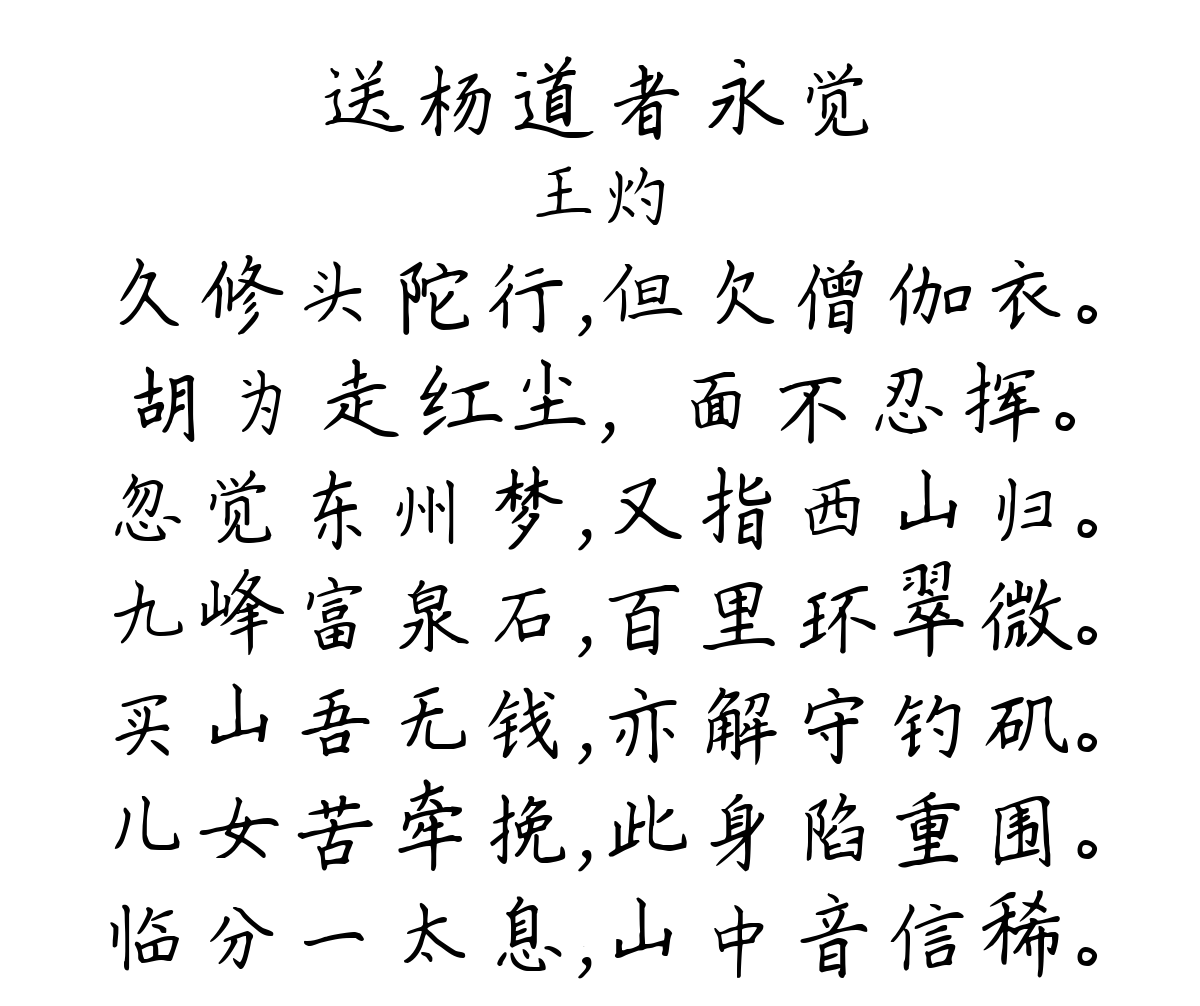 送杨道者永觉
王灼
久修头陀行,但欠僧伽衣。
胡为走红尘,面不忍挥。
忽觉东州梦,又指西山归。
九峰富泉石,百里环翠微。
买山吾无钱,亦解守钓矶。
儿女苦牵挽,此身陷重围。
临分一太息,山中音信稀。